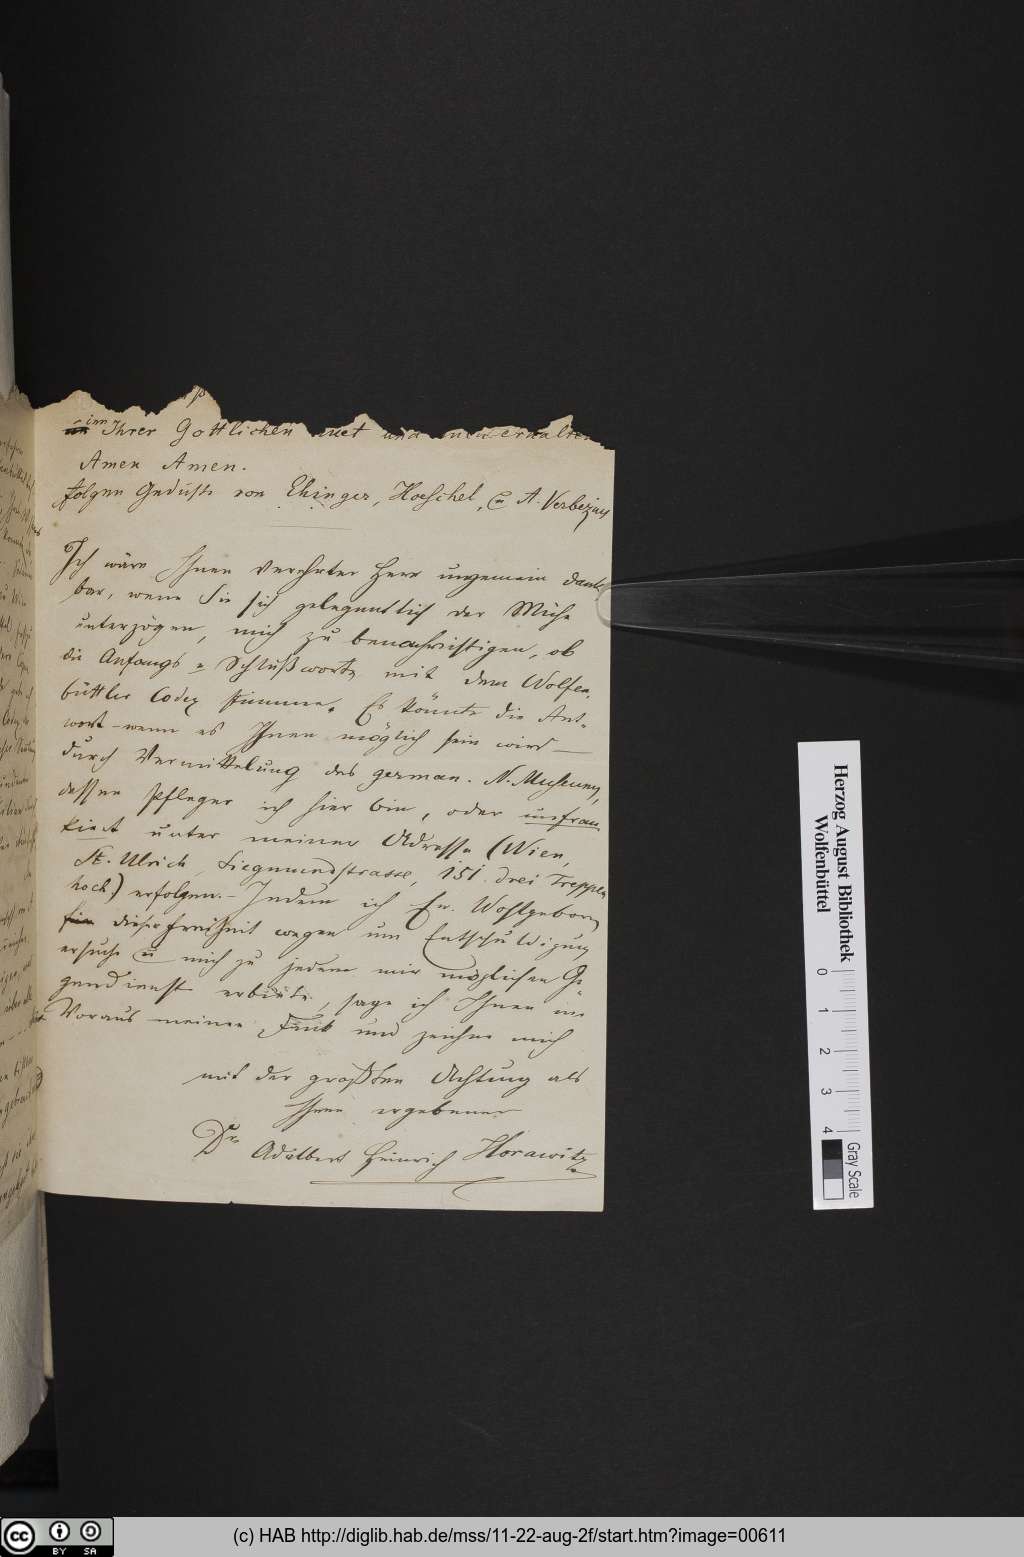 inn Ihrer Gottlichen huet und erhalten
Amen Amen.
folgen Gedichte von Ehinger, Hoeschel, u A. Verbezius
Ich wäre Ihnen verehrter Herr ungemein dank-
bar, wenn Sie sich gelegentlich der Mühe
unterzögen, mich zu benachrichtigen, ob
die Anfangs = Schlußworte mit dem Wolfen-
büttler Codex stimmen. Es könnte die Ant-
wort – wenn es Ihnen möglich sein wird –
durch Vermittelung des german. N. Museums,
dessen Pfleger ich hier bin, oder unfran-
kirt unter meiner Adresse (Wien,
St. Ulrich, Siegmundstrasse, 151. drei Treppen
hoch) erfolgen. – Indem ich Ew. Wohlgeboren
dieser Freiheit wegen um Entschuldigung
ersuche u mich zu jedem mir möglichen Ge-
gendienst erbiete, sage ich Ihnen im
Voraus meinen Dank und zeichne mich
mit der größten Achtung als
Ihren ergebenen
Dr. Adalbert Heinrich Horawitz
Herzog August Bibliothek
Wolfenbüttel
0 1 2 3 4
Gray Scale
cc BY SA
(c) HAB http://diglib.hab.de/mss/11-22-aug-2f/start.htm?image=00611